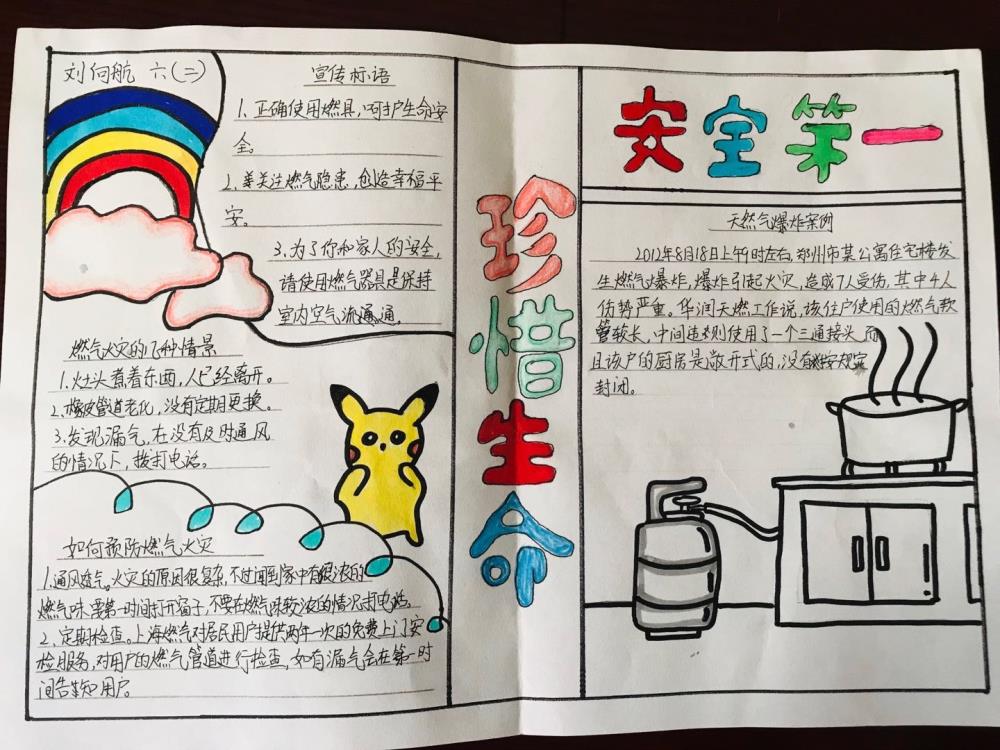 刘向航 六(二)
宣传标语
1、正确使用燃具,呵护生命安
全。
2、美关注燃气隐患,创造幸福平
安。
3、为了你和家人的安全,
请使用燃气器具是保持
室内空气流通通,
燃气火灾的几种情景
1、灶头煮着东西,人已经离开。
2、橡皮管道老化,没有定期更换。
3、发现漏气,在没有及时通风
的情况下,拨打电话。
如何预防燃气火灾
1、通风换气。火灾的原因很复杂,不过闻到家中有很浓的
燃气味,要第一时间打开窗子,不要在燃气味较浓的情况打电话。
2、定期检查。上海燃气对居民用户提供两年一次的免费上门安
检服务,对用户的燃气管道进行检查,如有漏气会在第一时
间告知用户。
珍惜生命
安全第一
天然气爆炸案例
2012年8月18日上午9时左右,郑州市某公寓住宅楼发
生燃气爆炸,爆炸引起火灾,造成7人受伤,其中4人
伤势严重。华润天燃工作说,该住户使用的燃气软
管较长,中间违规则使用了一个三通接头,而
且该户的厨房是敞开式的,没有按规定
封闭。